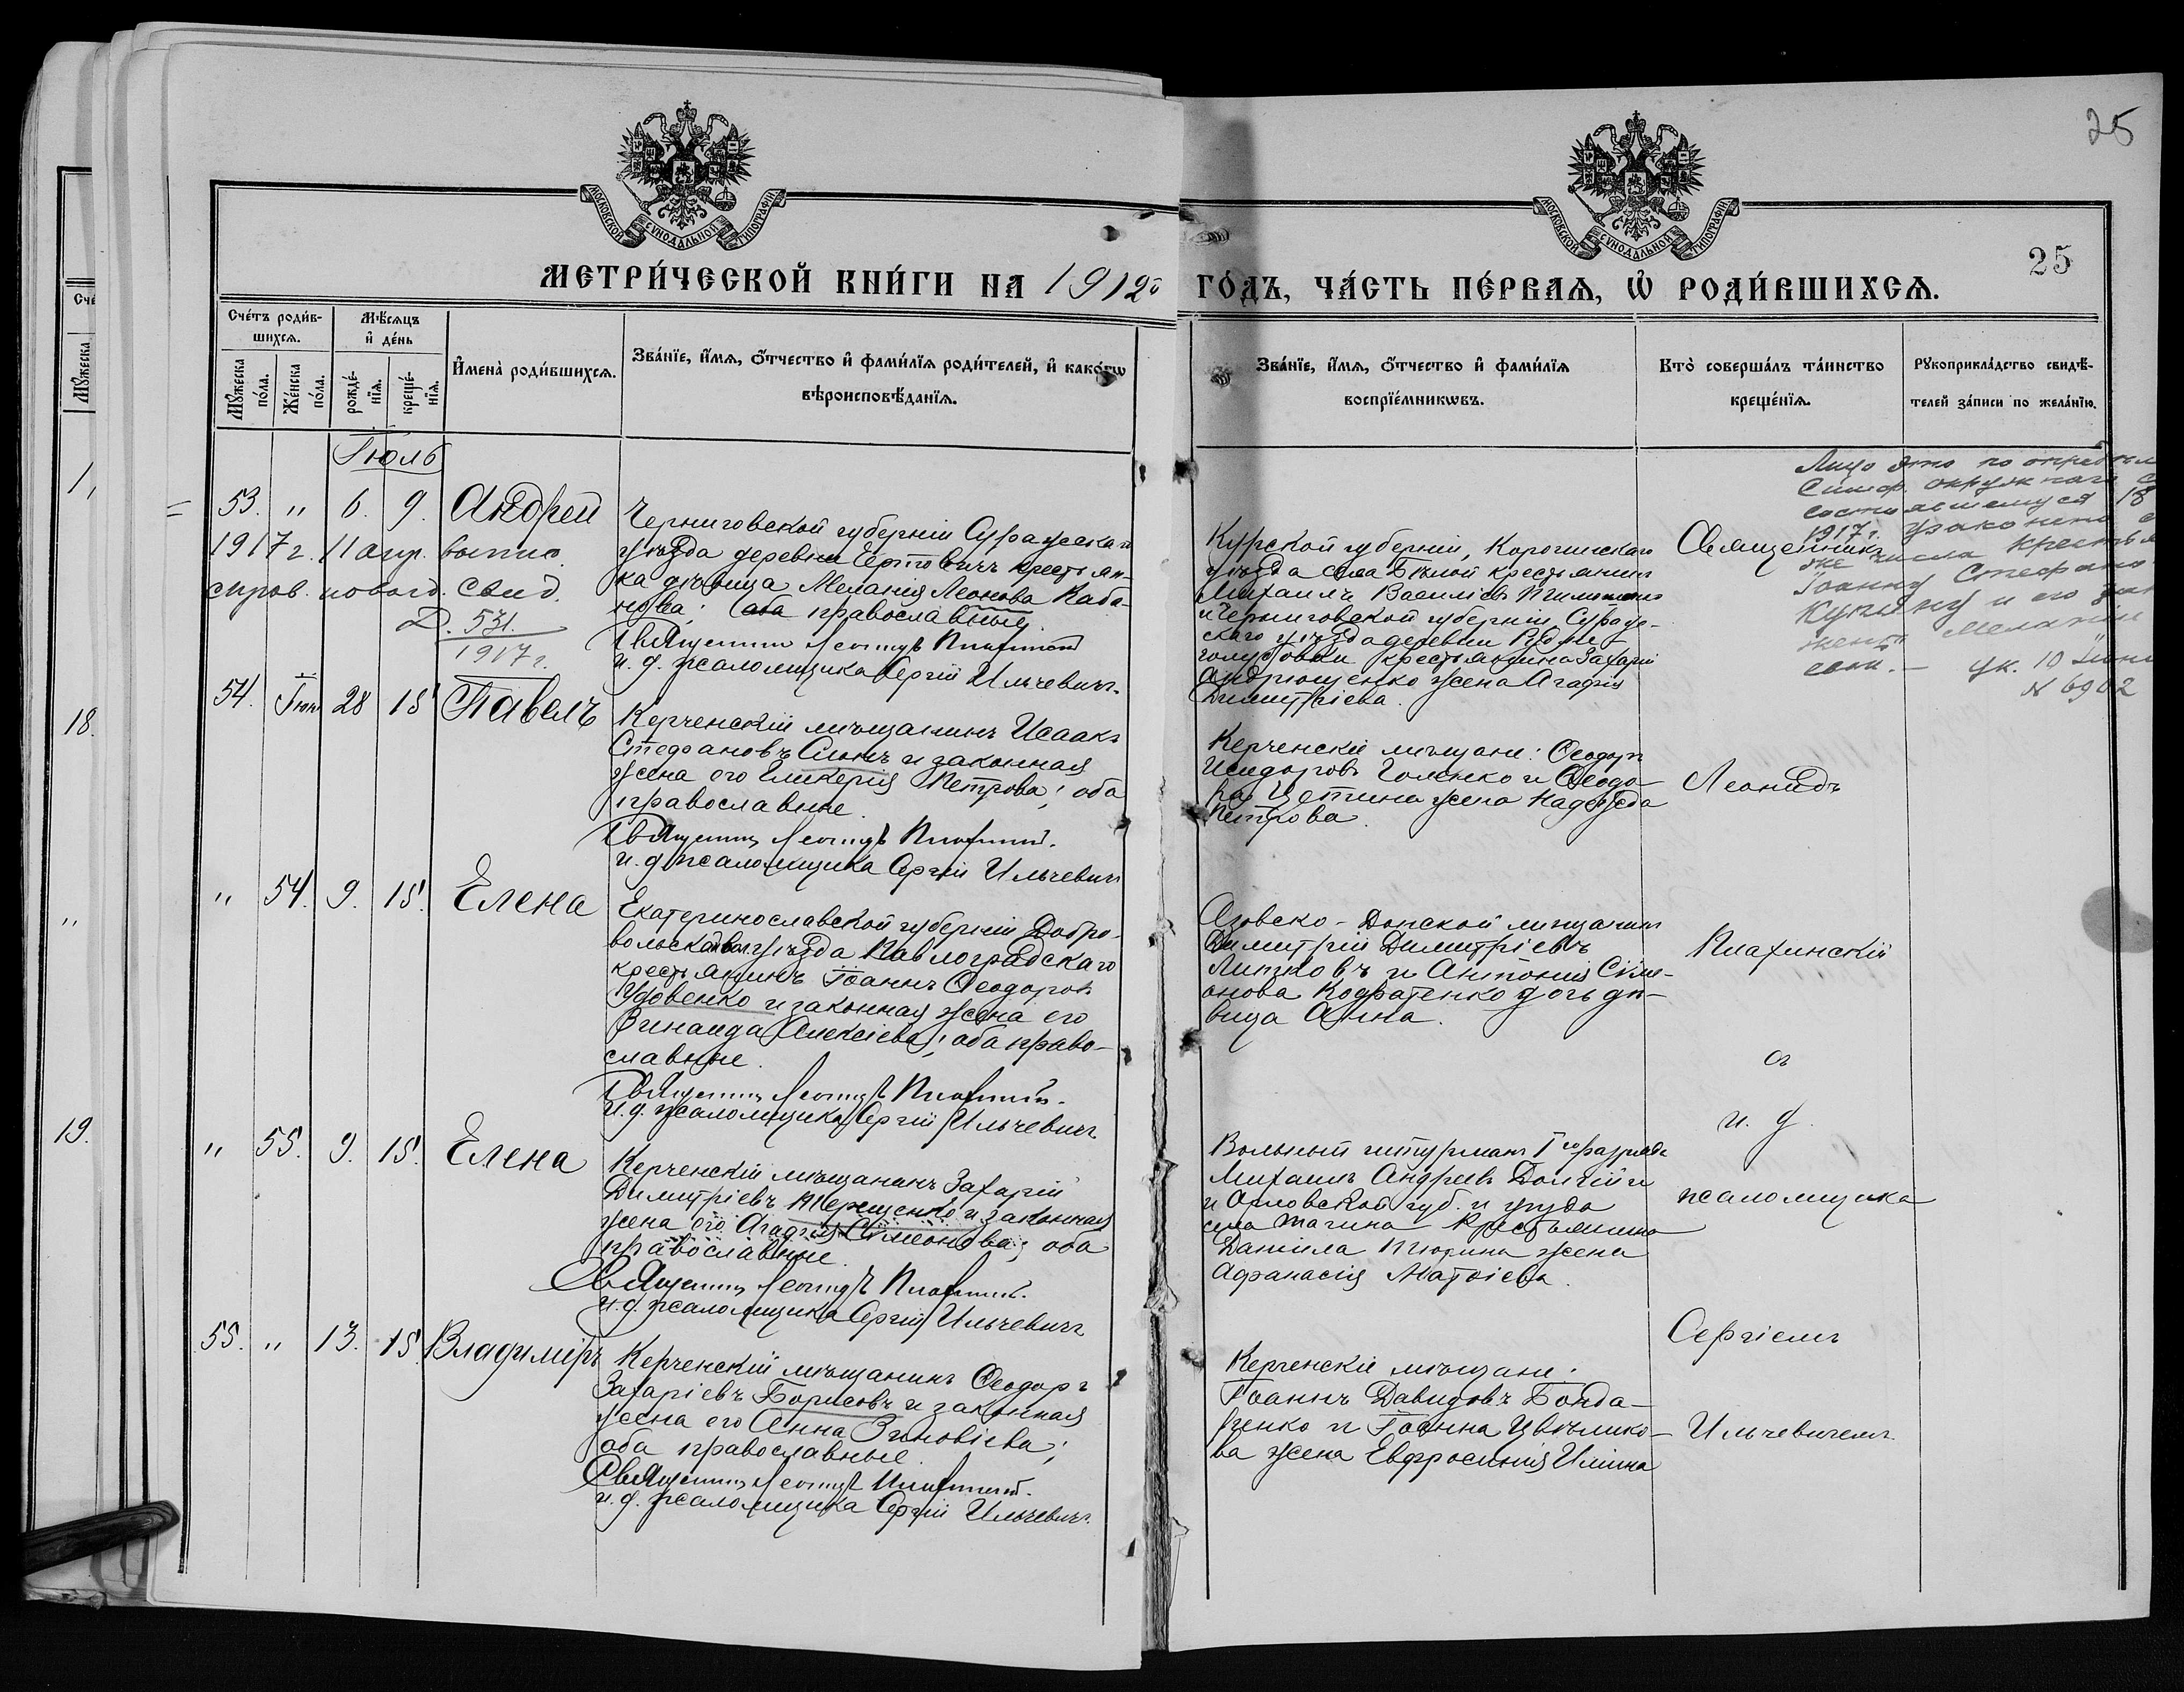 25
МОСКОВСКОЙ СѴНОДАЛЬНОЙ ТИПОГРАФІИ
МОСКОВСКОЙ СѴНОДАЛЬНОЙ ТИПОГРАФІИ
25
МЕТРИ́ЧЕСКОЙ КНИ́ГИ НА 1912й ГО́ДЪ, ЧА́СТЬ ПЕ́РВАѦ, Ѡ РОДИ́ВШИХСѦ.
Сче́тъ роди́в-
шихсѧ.
Мꙋжеска по́ла.
Же́нска по́ла.
Мѣ́сѧцъ
и҆ де́нь
рожде́-
нїѧ.
креще́-
нїѧ.
И҆мена̀ роди́вшихсѧ.
Зва́нїе, и҆́мѧ, ѻ҆́тчество и҆ фами́лїѧ роди́телей, и҆ како́гѡ
вѣроисповѣ́данїѧ.
Зва́нїе, и҆́мѧ, ѻ҆́тчество и҆ фами́лїѧ
воспрїе́мникѡвъ.
Кто̀ соверша́лъ та́инство
креще́нїѧ.
Рꙋкоприкла́дство свидѣ́-
телей за́писи по жела́нїю.
Іюль
53. " 6. 9. Андрей
1917 г. 11 апр. выпис.
спров. новое. свид.
Д. 531.
1917 г.
Черниговской губерніи Суражскаго
уѣзда деревни крестьян-
ка дѣвица Меланія Леонова Каба-
нова; православные.
Священник Леонидъ
и. д. псаломщика Сергій Ильчевичъ.
Курской губерніи, Корочинскаго
уѣзда села Бѣлой крестьянинъ
Михаилъ Васильевъ
и Черниговской губерніи Сураж-
скаго уѣзда деревни
голубовки крестьянина Захарія
Андрющенко жена Агафія
Димитріева.
Священника
Лицо это по опредѣл
Симф. окружнаго с
состоявшемуся 18
1917 г. узаконено
же числа крестья
Іоанну Стефано
и его
женѣ Меланіи
ук. 10 Іюня
N 6902
54. Іюн 28 15 Павелъ
Керченскій мѣщанинъ Исаакъ
Стефановъ и законная
жена его Гликерія Петрова; оба
православные.
Священник Леонидъ
и. д. псаломщика Сергій Ильчевичъ
Керченскіе мѣщане: Ѳеодоръ
Исидоровъ Голенко и Ѳеодо-
ра жена Надежда
Петрова.
Леонидъ
" 54. 9. 15. Елена
Екатеринославской губерніи Добро-
вольской вол. уѣзда Павлоградскаго
крестьянинъ Іоаннъ Ѳеодоровъ
Удовенко и законная жена его
Зинаида Алексіева; оба право-
славные.
Священник Леонидъ
и. д. псаломщика Сергій Ильчевичъ
Азовско-Донской мѣщанинъ
Димитрій Димитріевъ
Липковъ и Антонія Симе-
онова дочь дѣ-
вица Анна.
Плахинскій
съ
" 55. 9. 15. Елена
Керченскій мѣщанинъ Захарій
Димитріевъ Терещенко и законная
жена его Агафія Симеонова; оба
православные.
Священник Леонидъ
и. д. псаломщика Сергій Ильчевичъ
Вольный штурманъ 1го разряда
Михаилъ Андреевъ Долгій и
и Орловской губ. и уѣзда
села Тагина крестьянина
Даніила жена
Афанасія Матвіева.
и. д.
псаломщика
55. " 13. 15. Владиміръ
Керченскій мѣщанинъ Ѳеодоръ
Захаріевъ Борисовъ и законная
жена его Анна Зиновіева;
оба православные.
Священник Леонидъ
и. д. псаломщика Сергій Ильчевичъ.
Керченскіе мѣщане:
Іоаннъ Давидовъ Бонда-
ренко и Іоанна Цвѣтико-
ва жена Евфросинія
Сергіемъ
Ильчевичемъ
1,
18.
"
19.